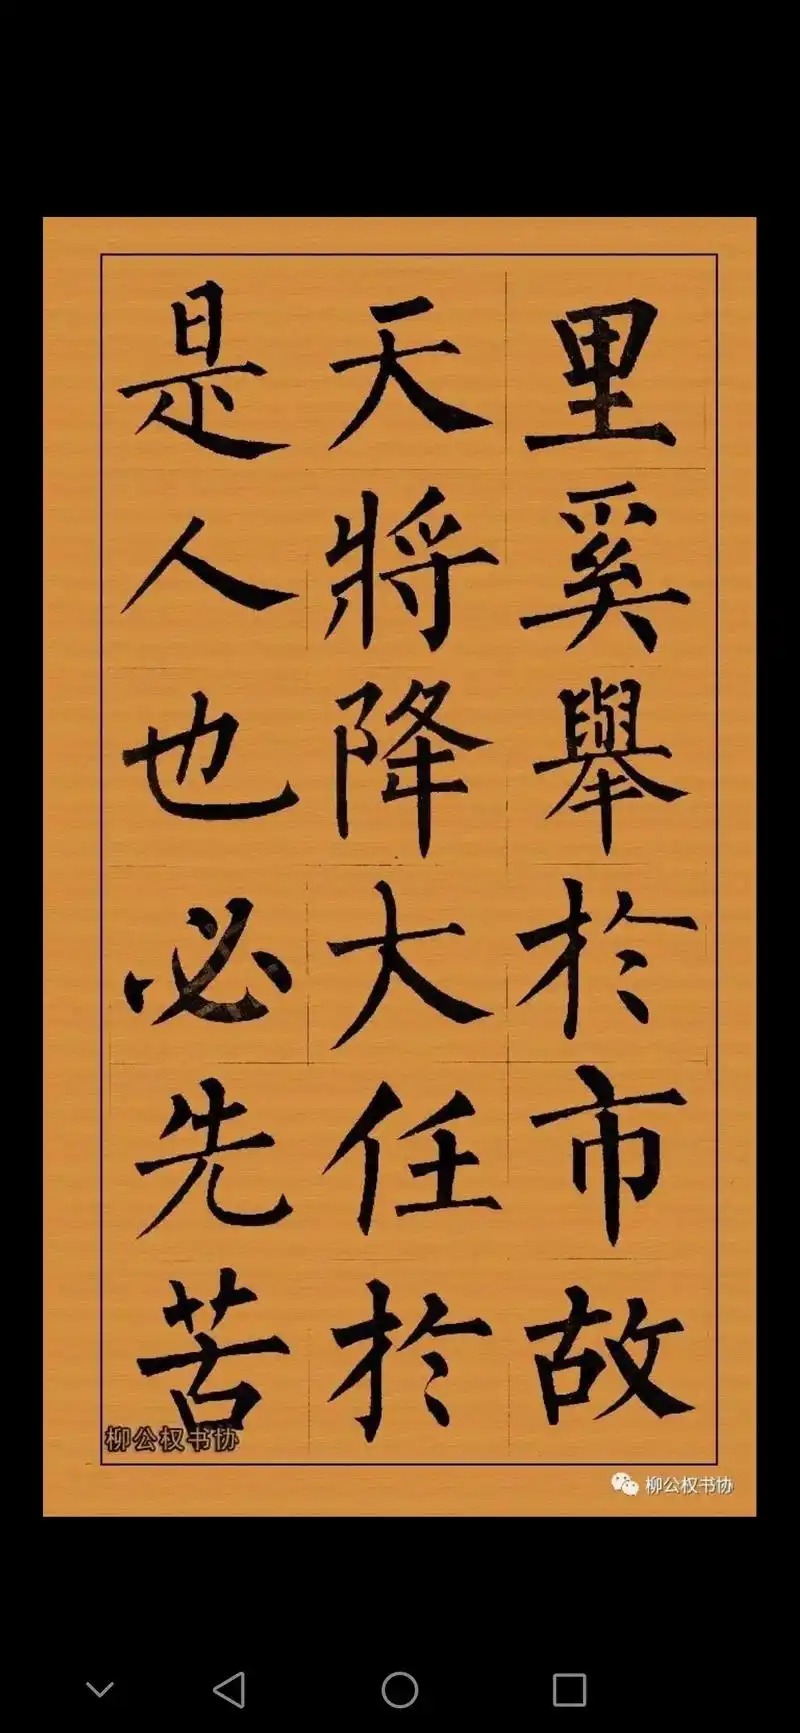 里奚舉於市故
天將降大任於
是人也必先苦
柳公权书协
柳公权书协